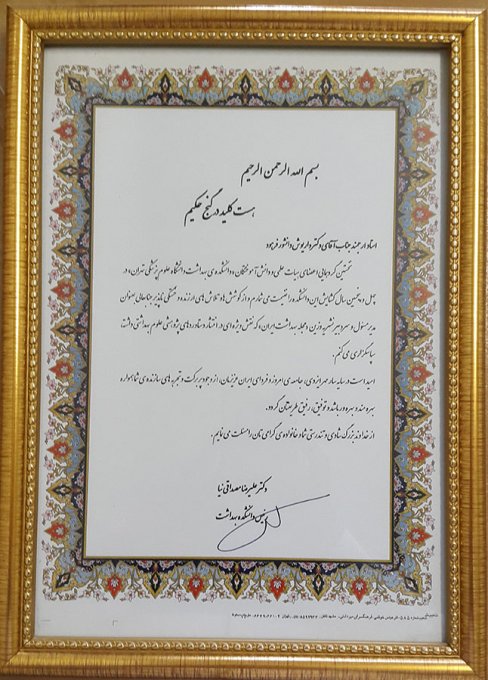 بسم الله الرحمن الرحیم
هست کلید در گنج حکیم
استاد ارجمند جناب آقای دکتر داریوش دانشور فرهود
نخستین گردهمایی اعضای هیات علمی و دانش آموختگان دانشکده ی بهداشت دانشگاه علوم پزشکی تهران و در
چهل و پنجمین سال گشایش این دانشکده را غنیمت می شمارم و از کوشش ها و تلاش های ارزنده و خستگی ناپذیر جنابعالی بعنوان
مدیر مسئول و سردبیر نشریه وزین مجله بهداشت ایران، که نقش ویژه ای در انتشار دستاوردهای پژوهشی علوم بهداشتی داشته
سپاسگزاری می کنم.
امید است در سایه سار مهر ایزدی، جامعه ی امروز و فردای ایران عزیزمان، از وجود پر برکت و تجربه های سازنده ی شما همواره
بهره مند و بهره ور باشد و توفیق، رفیق طریقتان گردد.
از خداوند بزرگ شادی و تندرستی شما و خانواده ی گرامی تان را مسئلت می نمایم.
دکتر علیرضا مصداقی نیا
رئیس دانشکده بهداشت